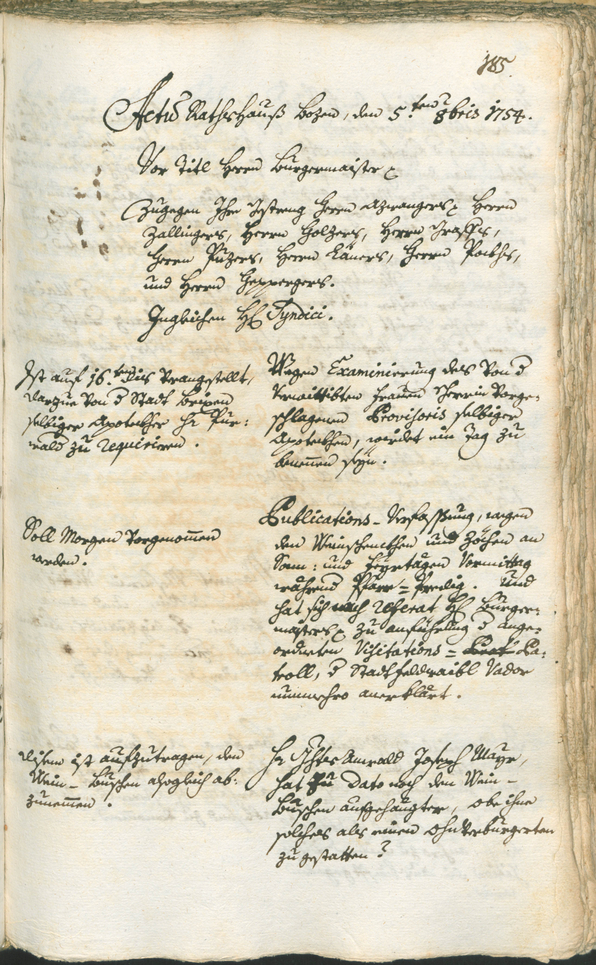 185.
Actum Rathshauß Bozen, den 5.ten 8bris 1754.
Vor Titl Herrn Burgermaister
Zugegen Ihro Herrn Azwangers Herrn
Zallingers, Herrn Holzers, Herrn
Herrn Herrn Herrn
und Herrn Geppergers.
Ingleichen H. Syndici.
Ist auf 16.ten dis veranstellt,
von d Stadt Brixen
selbiger Apotekher Hr
zu requirieren.
Wegen Examinierung des von d
verwittibten Frauen vorge-
schlagenen Provisoris selbiger
Apotekhen, wirdet ein Tag zu
benennen seyn.
Soll Morgen vorgenommen
werden.
Publications-Verfassung, wegen
den Weinschenkhen und Zöchen an
Sonn: und Feyrtägen Vormittag
während Pfarr-Predig. Und
hat sich nach Referat H. Burger-
maisters zu anführung d ange-
ordneten Visitations- Pa-
troll, d Stadtfeldwaibl Vador
nunmehro anerklärt.
disem ist aufzutragen, den
Wein-Buschen alsogleich ab-
zunemmen.
Hr Anwald Joseph Mayr,
hat zu dato noch den Wein-
Buschen aufgehängter, obe ihne
solches als einen ohnverburgerten
zu gestatten?